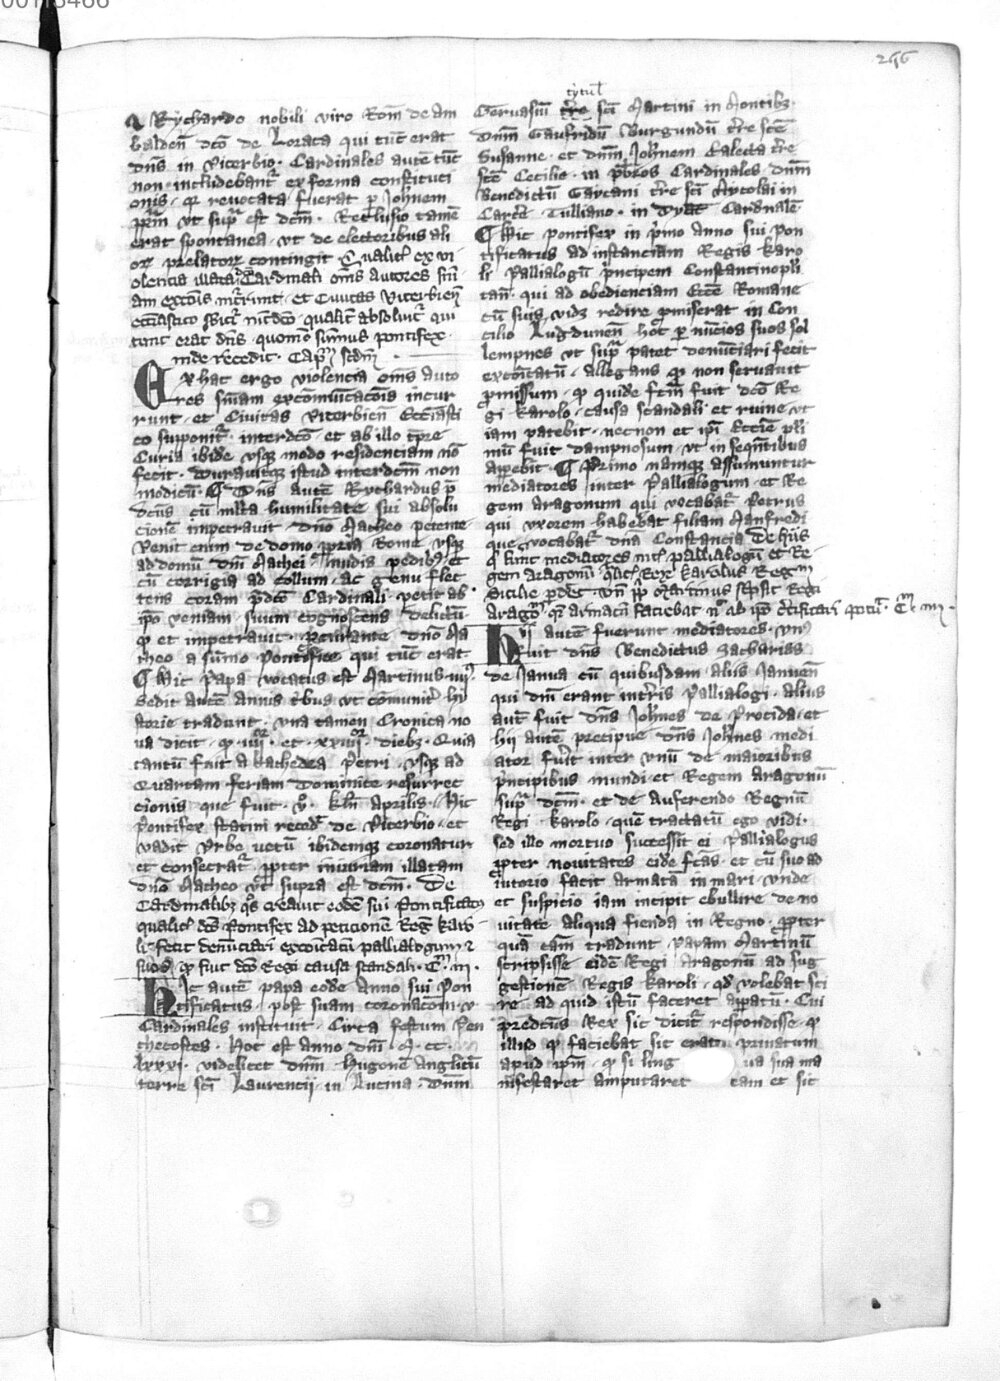 266
A Rychardo nobili viro Rom̄ de Am
baldeñ dc̄o de Lorata qui tūc erat
dn̄s in viterbio · Cardinales autē tūc
non includebantʳ ex forma constituci
onis · qꝛ revocata fuerat p̱ Joh̄nem
ut supᵃ est dc̄m · Reclusio tamē
erat spontanea · ut de electoribus ali
oꝝ prelatoꝝ contingit Qualitˢ ex vi
olencia illata dn̄o Cardinali om̄s Autores sn̄i
am exc̄ois ıncʳrunt · et Civitas Viterbieñ
qualitˢ absolvitʳ qui
tunc erat dn̄s · quomᵒ sūmus pontifex ·
inde recedit · Capᵐ scd̄m ·
Ex hac ergo violencia om̄s auto
res sn̄iam excōmu̅icac̄ois incur
runt · et Civitas Viterbieñ Ecc̄iasti
co supponitʳ · interdc̄o · et ab illo tp̄re ·
Curia ibidē usqꝫ modo residenciam nō
fecit · Durauitqꝫ istud interdc̄m non
modicū · ¶ Dn̄s autē Rychardus p̄
dc̄us cū ml̄ta humilitate sui absolu
cionē impetravit · dn̄o Matheo petente
Venit enim de domo p̱pria Rome usqꝫ
ad domū dn̄i Mathei · nudis pedibꝫ · et
cū corrigia ad collum · ac genu flec
tens coram p̄dc̄o Cardinali · petit ab ·
ip̄o veniam · suum cognoscens delictū ·
qꝫ et impetravit · procurante dn̄o Ma
theo a sūmo pontifice qui tūc erat
¶ Hic Papa vocatus est Martinus · iiii ·
Sedit autē Annis tʳbus ut cōmunitˢ hi
storie tradunt · una tamen Cronica no
va dicit · qꝫ · iiiiᵒʳ · et · xxviii · diebꝫ · Quia
tantū fuit a kathedra Petri · usqꝫ ad
Quartam feriam Dominice resurrec
cionis que fuit · vᵒ · kl̄n Aprilis · Hic
Pontifex statim recedˢ de Viterbio · et
vadit Urbe vetū ibidemqꝫ coronatur
et consecratʳ p̱pter iniuriam illatam
dn̄o Matheo ut supra est dc̄m · De
Cardinalibꝫ qᵒs creavit eodē sui pontificatus
qualitˢ dc̄s Pontifex ad peticionē Regˢ karo
li · fecit denu̅ciari exc̄oicatū pallialogum ⁊
suos qꝫ fuit dc̄o Regi causa scandali · Cᵐ · iii ·
Hic autē papa eodē Anno sui Pon
tificatus · post suam coronac̄om · v ·
Cardinales instituit · Circa festum Pen
thecostes · Hoc est anno dn̄i · M · cc ·
lxxxi · videlicet dn̄m Hugonē Anglicū
terre sc̄i Laurencii · in Lucina · Dn̄m
tytul̄
Gervasiū tr̄re sc̄i Martini in Montibꝫ ·
Dn̄m Gaufridū Burgundū tr̄re sc̄e
Susanne · et dn̄m Joh̄nem Calecta tr̄re
sc̄e Cecilie · in pr̄bros Cardinales · Dn̄m
Benedictū Gaytani tr̄re sc̄i Nycolai in
Carc̄e · Tulliano · in Dyac̄ Cardinalē
¶ Hic pontifex in pⁱmo anno sui pon
tificatus ad instanciam Regis karo
li Pallialogū pⁱncipem Constantinopl̄i
tañ · qui ad obedienciam Ecc̄e Romane
cū suis vidꝫ redire pⁱmiserat in Con
cilio Lugduneñ hoc̄ p̱ nūcios suos sol
lempnes ut supᵃ patet denu̅ciari fecit
exc̄oicatū · allegans qꝫ non servavit
pⁱmissum · qꝫ quidē fc̄m fuit dc̄o Re
gi karolo · causa scandali et ruine · ut
iam patebit · necnon et ip̄i Ecc̄ie pl̄i
mū fuit dampnosum · ut in seqn̄tibus
apˢebit · ¶ Primo namqꝫ assumuntur
mediatores inter Pallialogum · et Re
gem aragonum qui vocabatʳ Petrus
qui uxorem habebat filiam Manfredi
que vocabatʳ dn̄a Constancia De hiis
qⁱ sunt mediatores intˢ pallialogū et Re
gem Aragonū · qualitˢ Rex karolus Regᵐ
Sicilie p̱det · un̄ pp̄ Martinus scⁱpsit Regi
Aragoˢ · qᵃ armac̄m faciebat nᵒ ab ip̄o cˢtificari potuᵗ · Cᵐ · iiii ·
Hii autē fuerunt mediatores · unᵘˢ
fuit dn̄s Benedictus Zacharias
de Janua cū quibusdam aliis Januēñ
qui dn̄i erant intˢris Pallialogi · alius
aut̄ fuit dn̄s Joh̄nes de Procida · et
hii autē precipue dn̄s Joh̄nes medi
ator fuˢit inter unū de maioribus
pⁱncipibus mundi · et Regem aragonū
supᵃ dc̄m · et de Auferendo Regnū
Regi karolo · quē tractatū ego vidi ·
sed illo mortuo successit ei Pallialogus
p̱pter novitates eidē fc̄as · et cū suo ad
iutorio facit armatā in mari · unde
et suspicio iam incipit ebullire de no
uitate aliqua fienda in Regno · p̱pter
quā cām tradunt papam Martinū
scripsisse eidē Regi Aragonū ad sug
gestionē Regis karoli · qđ volebat sci
re ad quid istū faceret apˢatū · Cui
predc̄us Rex sic dicitʳ respondisse · qꝫ
illud qꝫ faciebat sic erat privatum
apud ip̄m · qꝫ si ling ua sua ma
nifestaret amputaret eam et sic